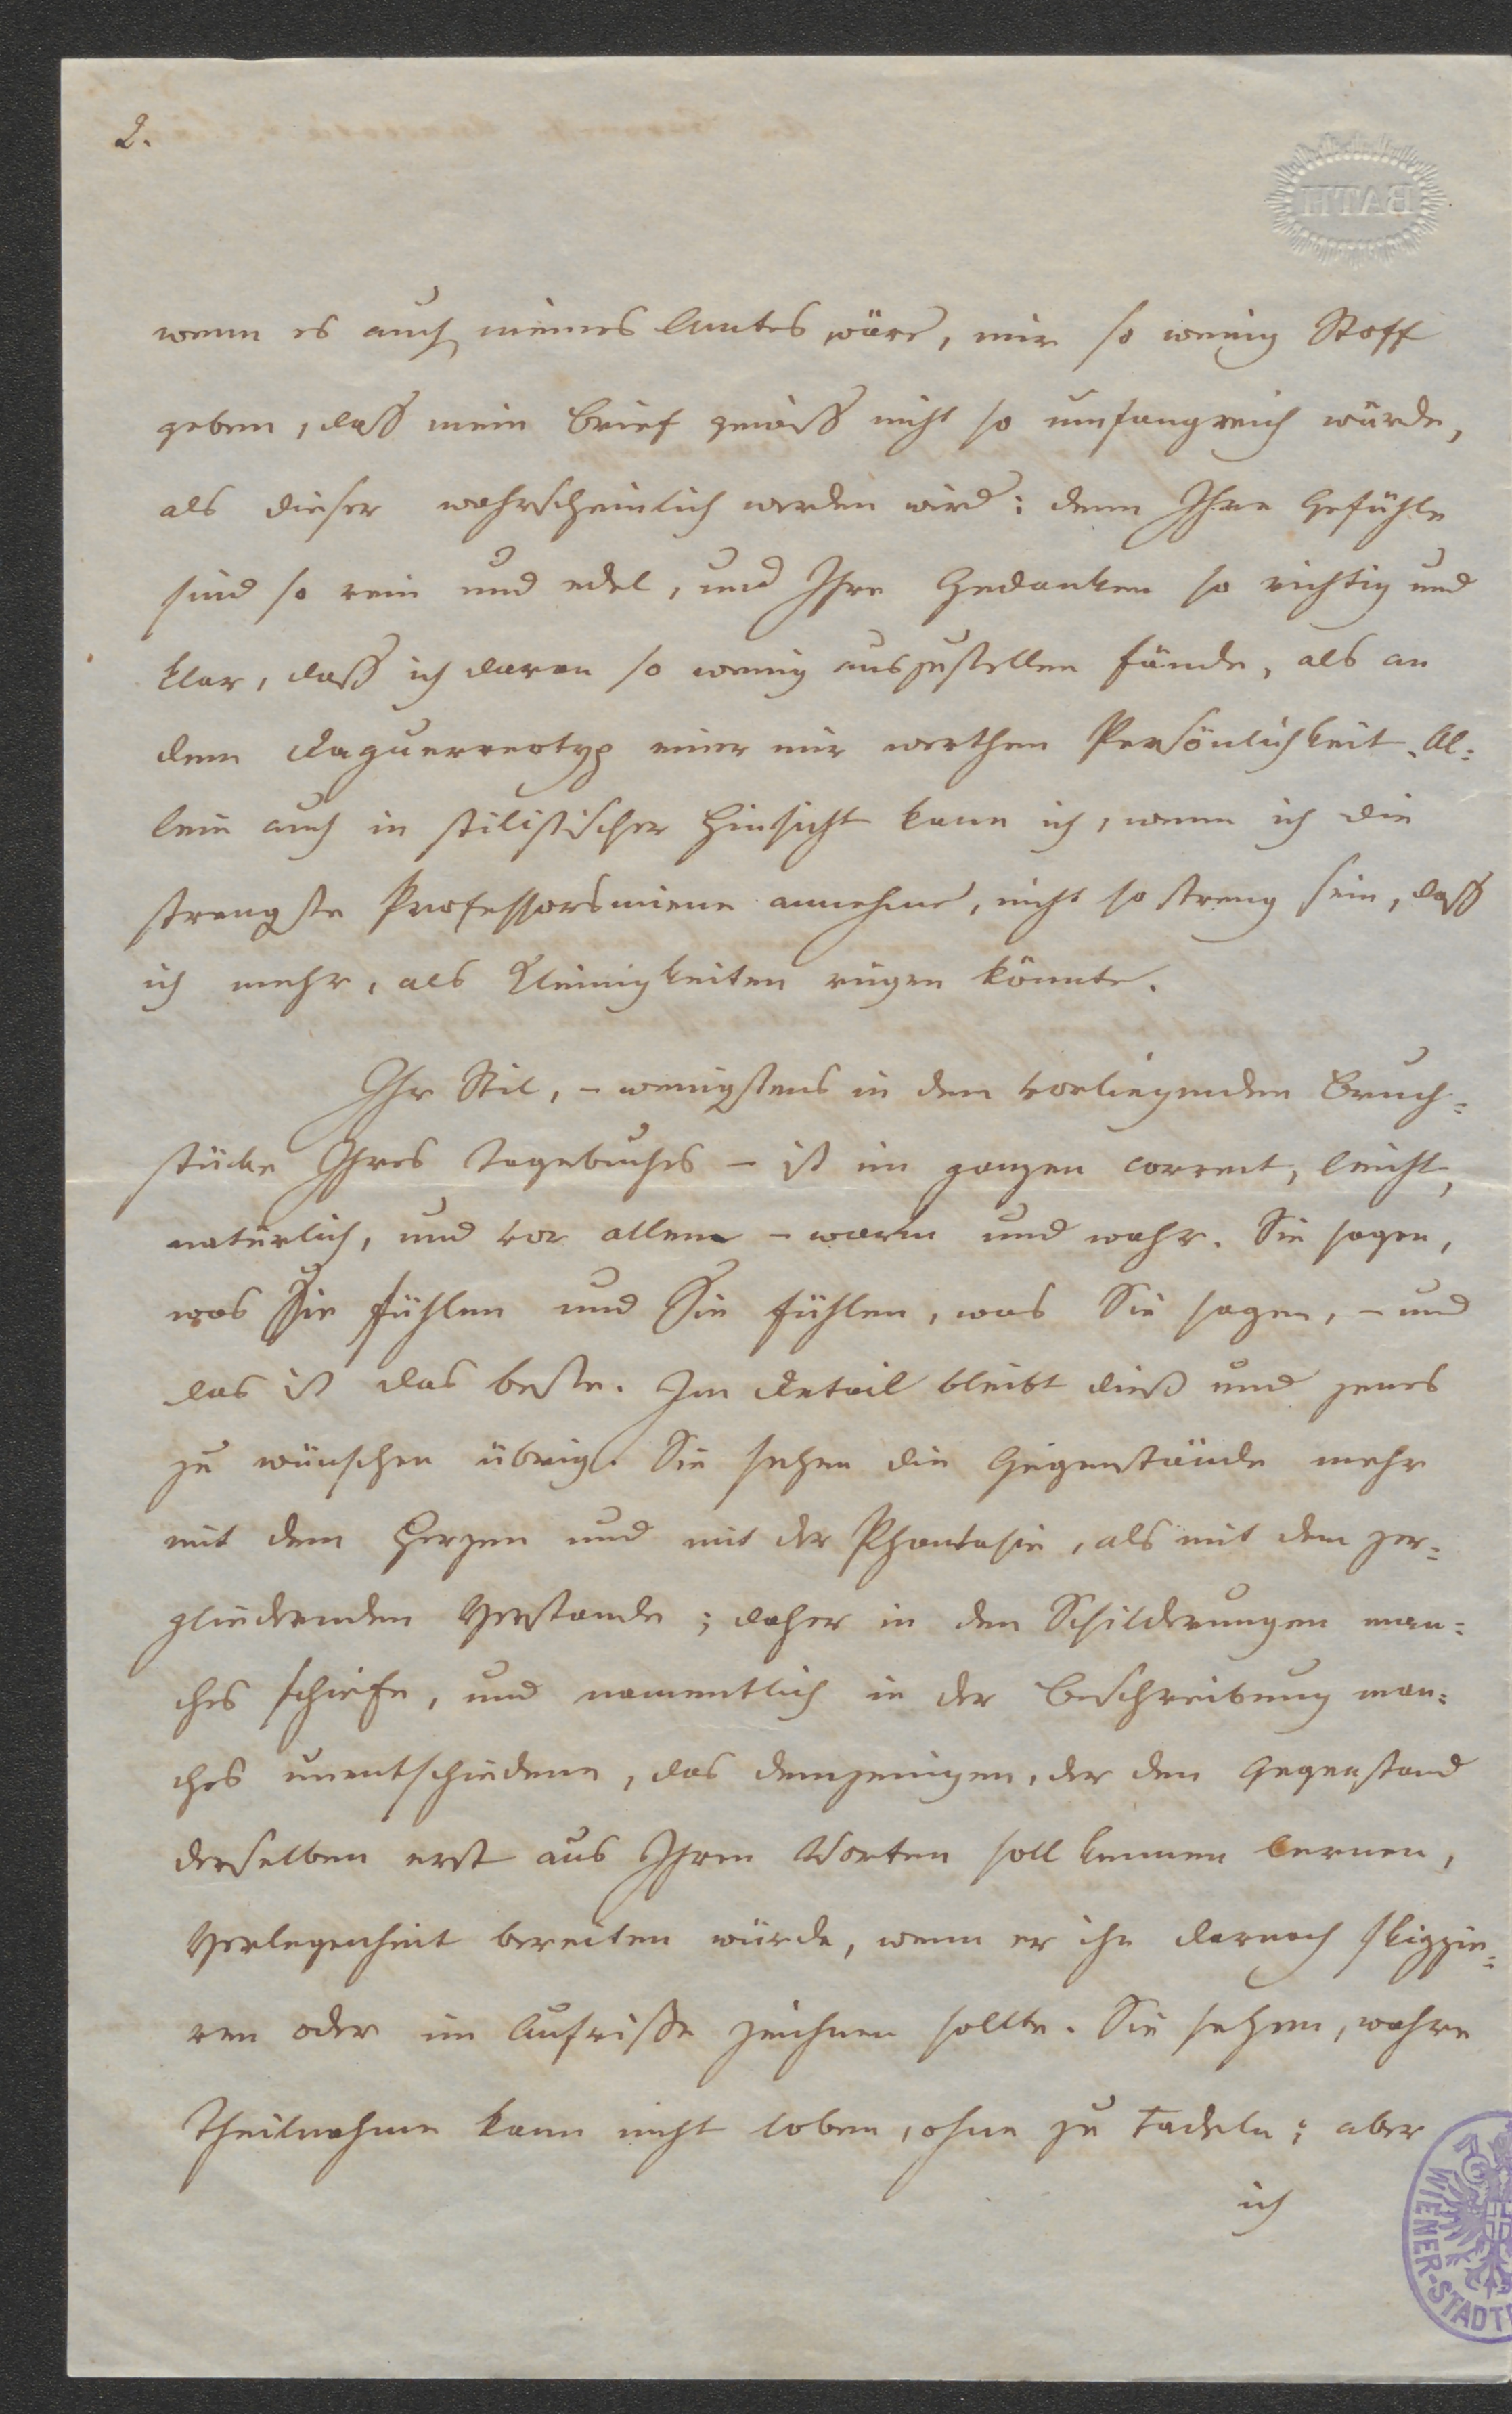 2.
BATH
wenn es auch meines Amtes wäre, mir so wenig Stoff
geben, daß mein Brief gewiß nicht so umfangreich würde,
als dieser wahrscheinlich werden wird: denn Ihre Gefühle
sind so rein und edel, und Ihre Gedanken so richtig und
klar, daß ich daran so wenig auszustellen fände, als an
dem Daguerreotyp einer mir werthen Persönlichkeit. Al=
lein auch in stilistischer Hinsicht kann ich, wenn ich die
strengste Professorsmiene annehme, nicht so streng sein, daß
ich mehr, als Kleinigkeiten rügen könnte.
Ihr Stil, – wenigstens in dem vorliegenden Bruch=
stücke Ihres Tagebuches – ist im ganzen correct, leicht,
natürlich, und vor allem – warm und wahr. Sie sagen,
was Sie fühlen und Sie fühlen, was Sie sagen, – und
das ist das beste. Im Detail bleibt dieß und jenes
zu wünschen übrig. Sie sehen die Gegenstände mehr
mit dem Herzen und mit der Phantasie, als mit dem zer=
gliedernden Verstande; daher in den Schilderungen man=
ches schiefe, und namentlich in der Beschreibung man=
ches unentschiedene, das demjenigen, der den Gegenstand
derselben erst aus Ihren Worten soll kennen lernen,
Verlegenheit bereiten würde, wenn er ihn darnach skizzie=
ren oder im Aufrisse zeichnen sollte. Sie sehen, wahre
Theilnahme kann nicht loben, ohne zu tadeln; aber
ich
WIENER-STADT